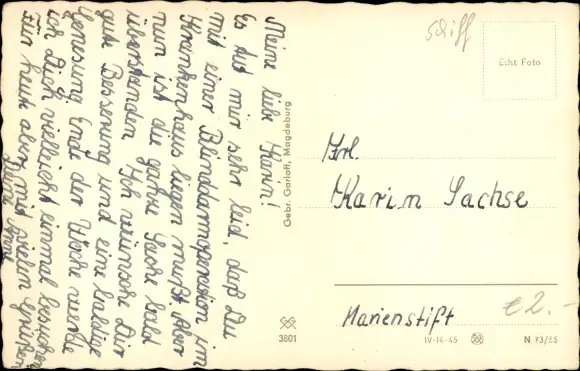 Meine liebe Karin!
Es tut mir sehr leid, daß Du
mit einer Blinddarmoperation im
Krankenhaus liegen mußt. Aber
nun ist die ganze Sache bald
überstanden. Ich wünsche Dir
gute Besserung und eine baldige
Genesung. Ende der Woche werde
ich Dich vielleicht einmal besuchen.
Für heute aber mit vielen Grüßen
Deine
Gebr. Garloff, Magdeburg
3801
Schiff
Echt Foto
Frl.
Karin Sachse
Marienstift
€2.-
IV-14-45
N 73/55